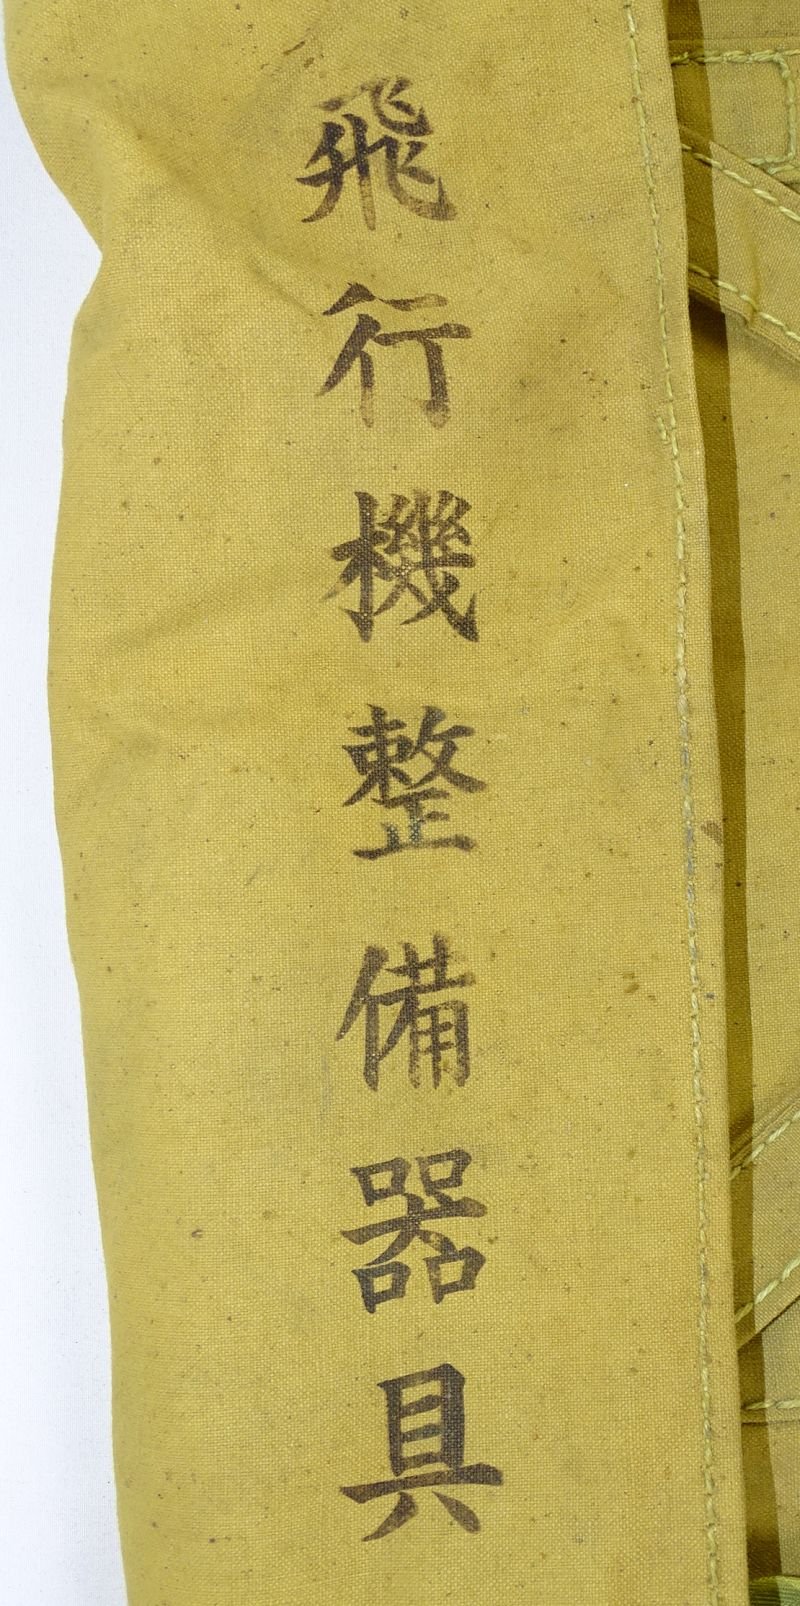 飛行機整備器具